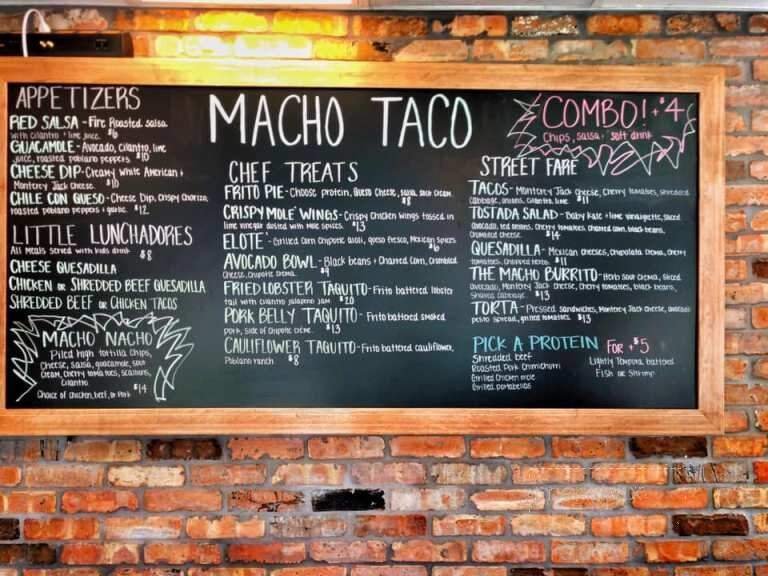 MACHO TACO
APPETIZERS
RED SALSA - Fire Roasted salsa
with cilantro + lime juice. $6
GUACAMOLE - Avocado, Cilantro, lime
juice, roasted poblano peppers $10
CHEESE DIP - Creamy White American +
Monterey Jack Cheese. $10
CHILE CON QUESO - Cheese Dip, Crispy Chorizo,
roasted poblano peppers + garlic. $12
LITTLE LUNCHADORES
All Meals Served with kids drink $8
CHEESE QUESADILLA
CHICKEN or SHREDDED BEEF QUESADILLA
SHREDDED BEEF or CHICKEN TACOS
MACHO NACHO
Piled high tortilla chips,
Cheese, salsa, guacamole, sour
cream, cherry tomatoes, scallions,
Cilantro
Choice of chicken, beef, or Pork $14
CHEF TREATS
FRITO PIE - Choose protein, Queso Cheese, salsa, sour cream.
$8
CRISPY MOLE' WINGS - Crispy Chicken wings tossed in
lime vinegar dusted with Mole spices. $13
ELOTE - Grilled Corn Chipotle aioli, queso fresco, Mexican Spices
$6
AVOCADO BOWL - Black beans + Charred Corn, Crumbled
Cheese, Chipotle Crema. $9
FRIED LOBSTER TAQUITO - Frito battered lobster
tail with cilantro jalapeno jam $20
PORK BELLY TAQUITO - Frito battered smoked
pork, side of Chipotle crème. $13
CAULIFLOWER TAQUITO - Frito battered cauliflower,
Poblano ranch. $8
COMBO! +$4
Chips, salsa + soft drink
STREET FARE
TACOS - Monterey Jack cheese, Cherry tomatoes, shredded
Cabbage, onions, Cilantro, lime $11
TOSTADA SALAD - Baby Kale + lime vinaigrette, sliced
avocado, red onions, Cherry tomatoes, Charred corn, black beans,
crumbled cheese. $14
QUESADILLA - Mexican cheeses, chipotle Crema, cherry
tomatoes, $11
THE MACHO BURRITO - Herb sour Crema, sliced
avocado, Monterey Jack cheese, Cherry tomatoes, black beans,
shaved cabbage. $13
TORTA - Pressed sandwiches, Monterey Jack cheese, avocado
pesto spread, grilled tomatoes. $13
PICK A PROTEIN FOR +$5
Shredded beef
Roasted Pork Chimichurri
Grilled Chicken mole
Grilled portabellas
Lightly Tempura battered
Fish or Shrimp